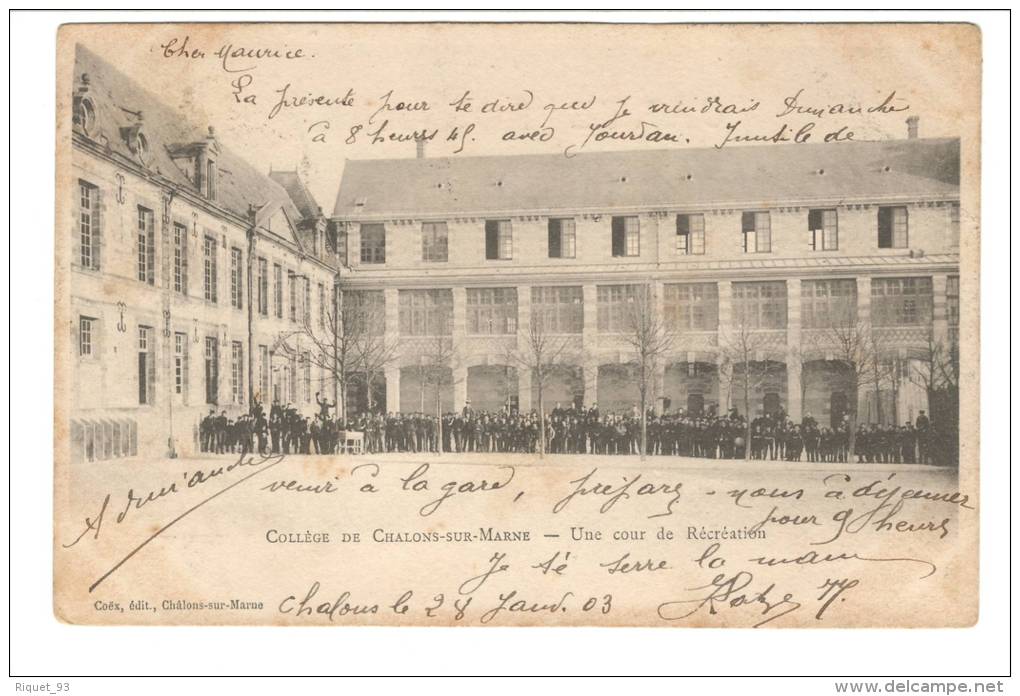 Cher Maurice.
La présente pour te dire que je viendrais Dimanche
à 8 heures 45. avec Jourdan. Inutile de
venir à la gare, préparez-nous à déjeuner
pour 9 heures
A dimanche
COLLÈGE DE CHALONS-SUR-MARNE — Une cour de Récréation
Je té serre la main
Coëx, édit., Châlons-sur-Marne
Chalons le 28 Janv. 03
Riquet_93
www.delcampe.net